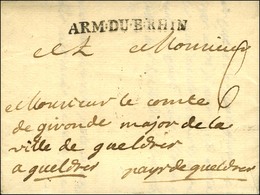 ARM·DU·B·RHIN
A Monsieur
Monsieur le comte
de gironde major de la
ville de gueldres
a gueldres pays de gueldres